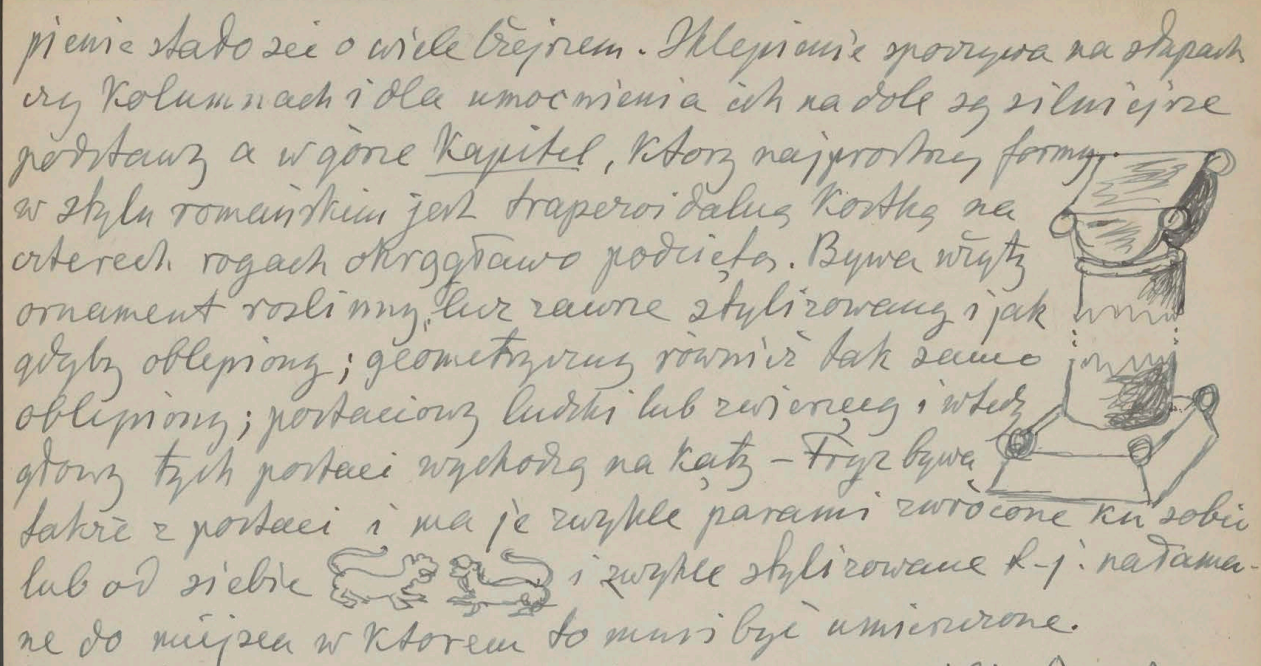 pienie stało się o wiele lżejszem. Sklepienie spoczywa na słupach
czy Kolumnach i dla umocnienia ich na dole są silniejsze
podstawy a w górze Kapitel, który najprostszej formy
w stylu romańskim jest trapezoidalną Kostką na
czterech rogach okrągławo podciętą. Bywa użyty
ornament roślinny, lecz zawsze stylizowany i jak
gdyby oblepiony; geometryczny również tak samo
oblepiony; postaciowy ludzki lub zwierzęcy i wtedy
głowy tych postaci wychodzą na Kąty – Fryz bywa
także z postaci i ma je zwykle parami zwrócone ku sobie
lub od siebie i zwykle stylizowane t.j. nałama-
ne do miejsca w Ktorem to musi być umieszczone.